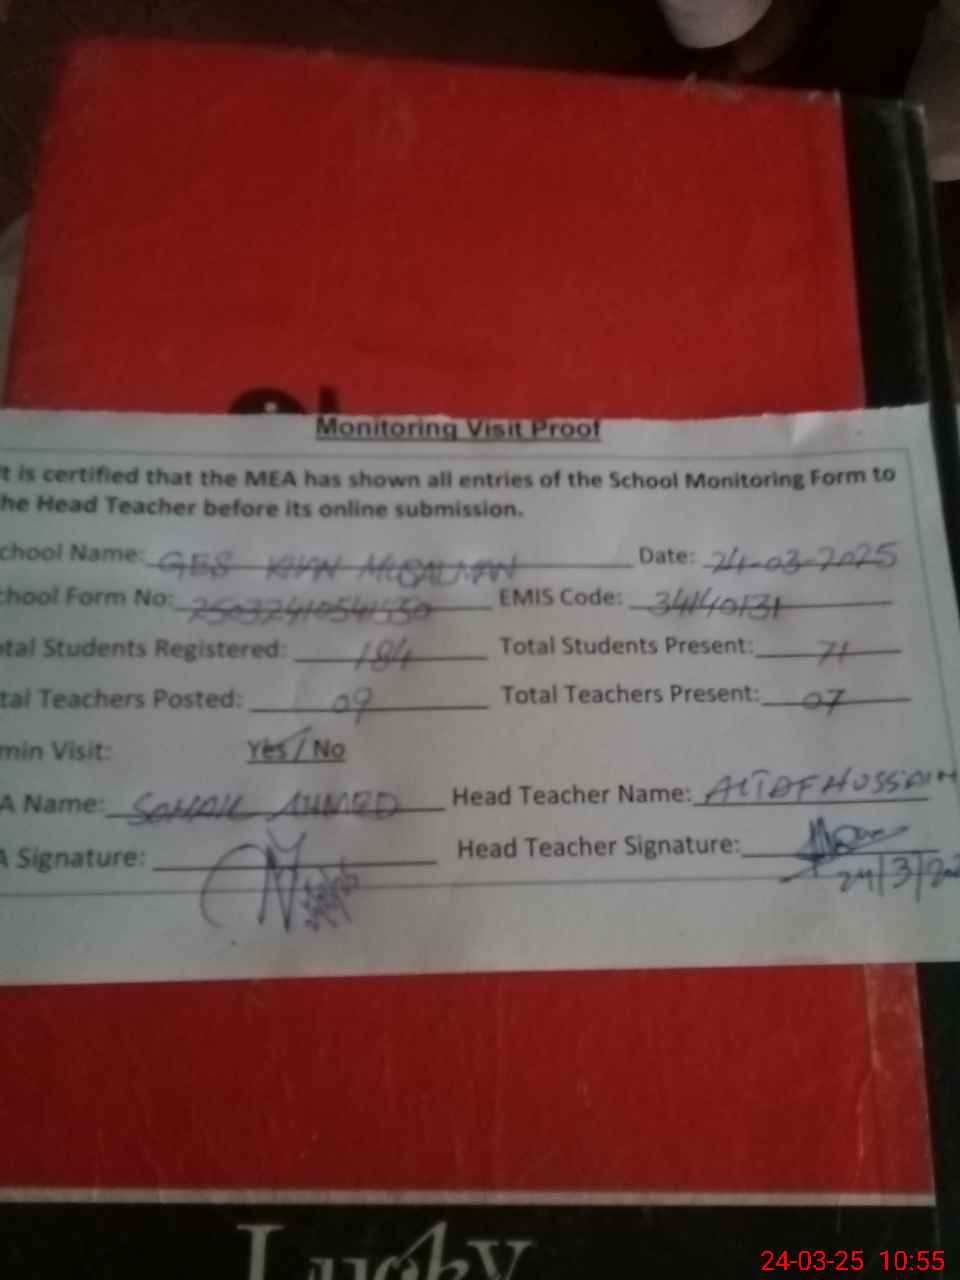 Monitoring Visit Proof
t is certified that the MEA has shown all entries of the School Monitoring Form to
he Head Teacher before its online submission.
chool Name: GES KHAN MUSALMAN Date: 24-03-2025
chool Form No: 25032410541550 EMIS Code: 34140131
tal Students Registered: 184 Total Students Present: 71
tal Teachers Posted: 09 Total Teachers Present: 07
min Visit: Yes / No
A Name: SOHAIL AHMED Head Teacher Name: ALTAF HUSSAIN
A Signature: Head Teacher Signature:
24/3/202
Lucky
24-03-25 10:55